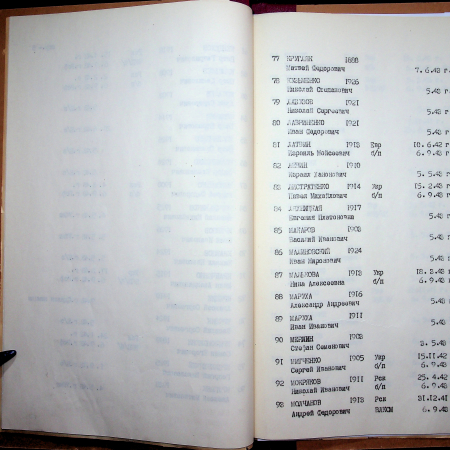 77 КРУГЛЯК 1888
Матвей Федорович 7.6.43 г
78 1926
Николай Степанович 5.43 г
79 1921
Николай Сергеевич 5.43 г
80 ЛАВРИНЕНКО 1921
Иван Федорович 5.43 г
81 1913 Евр 10.6.42 г
Моисеевич б/п 6.9.43 г
82 1910
5.5.43 г
83 ЛИСТРАТЕНКО 1914 Укр 15.2.43 г
Михайлович б/п 6.9.43 г
84 1917
Евгения Платоновна 5.43 г
85 МАКАРОВ 1903
Василий Иванович 5.43 г
86 МАЛИНОВСКИЙ 1924
Иван Миронович 5.43 г
87 1913 Укр
Нина Алексеевна б/п 6.9.43
88 МАРУХА 1916
Александр Андреевич 5.43
89 МАРУХА 1911
Иван Иванович 5.43
90 1903
Стефан Семенович 5.43
91 МИРЧЕНКО 1905 Укр 15.11.42
Сергей Иванович б/п 6.9.43
92 МОКРИКОВ 1911 Рск 25.4.42
Николай Иванович б/п 6.9.43
93 МОЛЧАНОВ 1913 Рск 31.12.41
Андрей Федорович ВЛКСМ 6.9.43